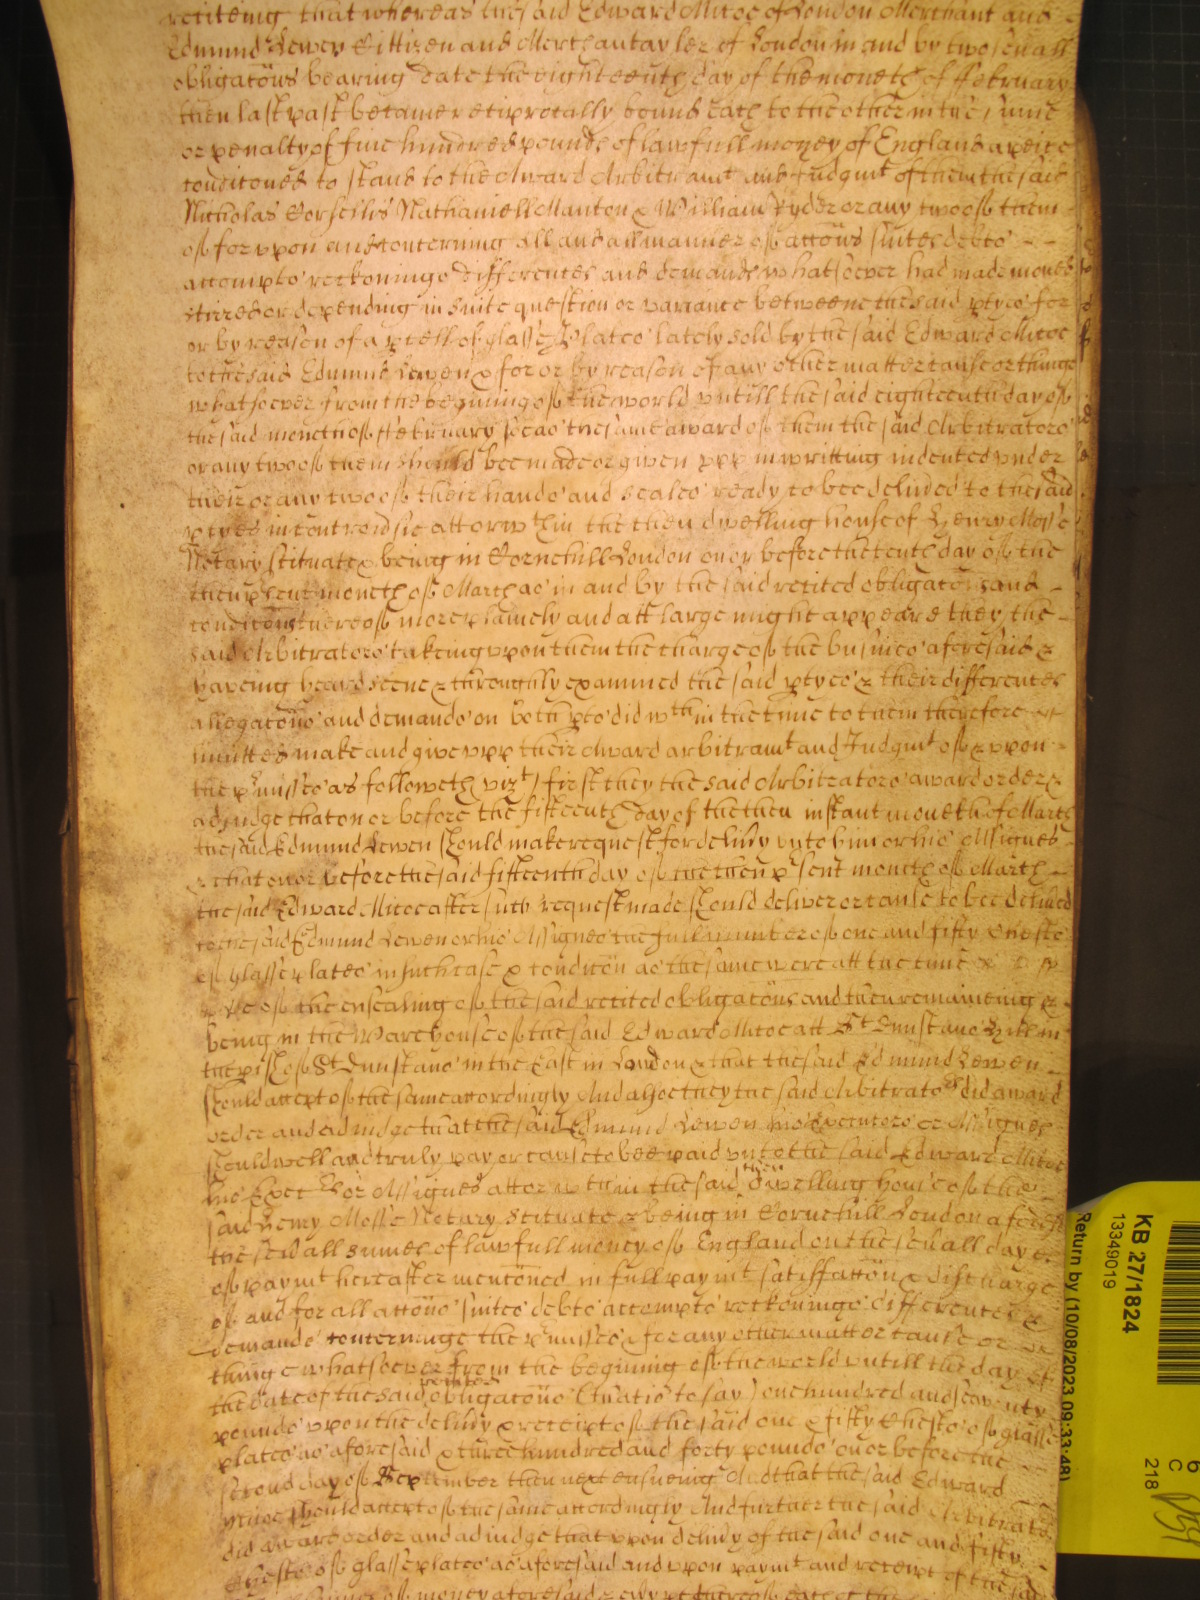 reciteing that whereas the said Edward Mitoe of London Merchant and
Edmund Lewen Cittizen and Merchantayler of London in and by two seu'all
obligacons bearing date the eighteenth day of the moneth of ffebruary
then last past became reciprocally bound each to the other in the sume
or penalty of five hundred pounds of lawfull money of England apeice
condiconed to stand to the Award Arbitramt and Judgmt of them the said
Nicholas Corseilis Nathaniell Manton & William Ryder or any two of them
of for upon and concerning all and all manner of accons suites debts
accompts reckonings differences and demands whatsoever had made moved
stirred or depending in suite question or variance betweene the said ptyes for
or by reason of a pcell of glasse Plates lately sold by the said Edward Mitoe
to the said Edmund Lewen & for or by reason of any other matter cause or thinge
whatsoever from the begining of the world untill the said eighteenth day of
the said moneth of ffebruary soe as the same award of them the said Arbitrators
or any two of them should bee made or given upp in writting indented under
their or any two of their hands and seales ready to bee deliued to the said
ptyes in controusie att or wthin the then dwelling house of Henry Mosse
Notary scituate & being in Cornehill London on or before the tenth day of the
then psent moneth of March as in and by the said recited obligacons and
condicons thereof more plainely and att large might appeare they the
said Arbitrators takeing upon them the charge of the busines aforesaid &
haveing heard seene & throughly examined the said ptyes & their differences
allegacons and demands on both pts did wthin the time to them therefore
limitted make and give upp their Award arbitramt and Judgmt of & upon
the pmisses as followeth vizt) first they the said Arbitrators award order &
adjudge that on or before the fifteenth day of the then instant moneth of March
the said Edmund Lewen should make request for deliuy unto him or his Assignes
& that on or before the said fifteenth day of the then psent moneth of March
the said Edward Mitoe after such request made should deliver or cause to bee deliued
to the said Edmund Lewen or his Assignes the full number of one and fifty Chests
of glasse plates in such case & condicon as the same were att the time
of the ensealing of the said recited obligacons and then remaineing &
being in the Warehouse of the said Edward Mitoe att St Dunstans Hill in
the pish of St Dunstans in the East in London & that the said Edmund Lewen
should accept of the same accordingly And alsoe they the said Arbitrators did award
order and adjudge that the said Edmund Lewen his Executors or Assignes
should well and truly pay or cause to bee paid unto the said Edward Mitoe
his Exec or Assignes att or wthin the said then dwelling house of the
said Henry Mosse Notary scituate & being in Cornehill London aforesd
the seu'all sumes of lawfull money of England on the seu'all dayes
of paymt hereafter menconed in full paymt satisfaccon & discharge
of and for all accons suites debts accompts reckonings differences &
demands concerninge the pmisses & for any other matter cause or
thinge whatsoever from the begining of the world untill the day of
the date of the said recited obligacons (that is to say) one hundred and seaventy
pounds upon the deliuy & receipt of the said one & fifty Chests of glasse
plates as aforesaid & three hundred and forty pounds on or before the
second day of September then next ensueing And that the said Edward
Mitoe should accept of the same accordingly And further the said Arbitrators
did award order and adjudge that upon deliuy of the said one and fifty
Chests of glasse plates as aforesaid and upon paymt and receipt of the said
of money aforesaid
KB 27/1824
13349019
Return by (10/08/2023 09:33:48)
6
C
218